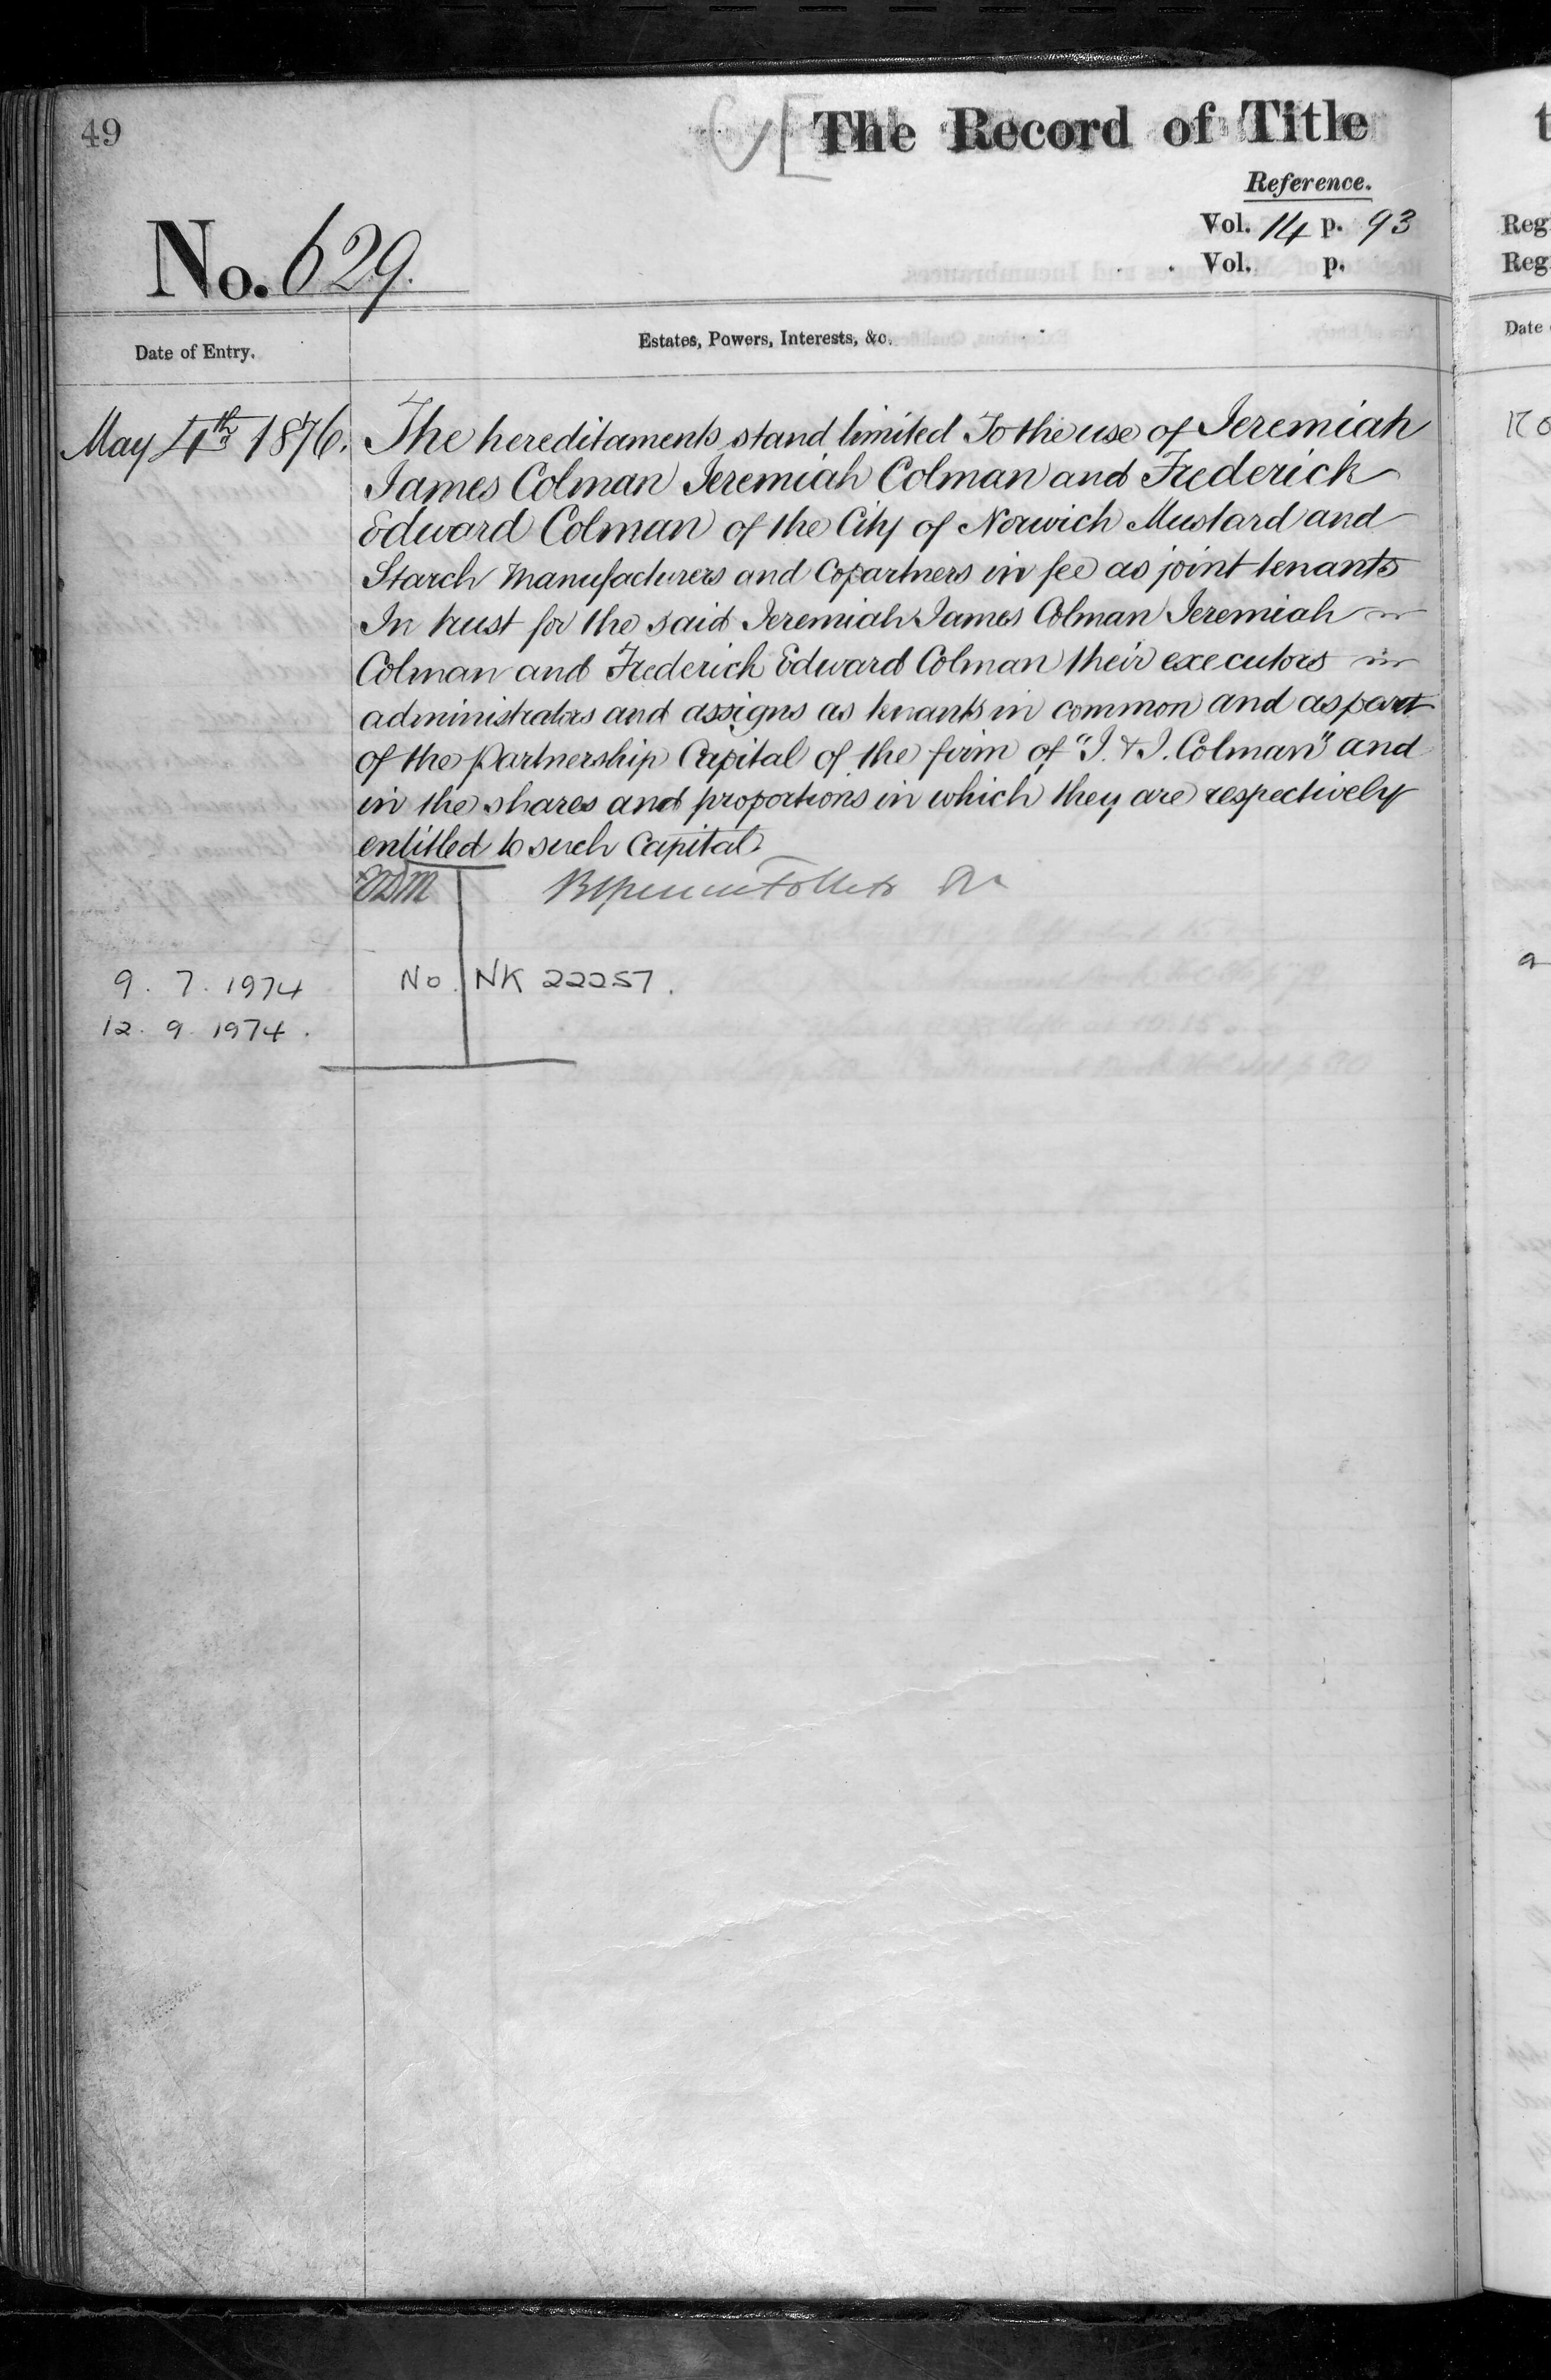 49
The Record of Title
Reference.
Vol. 14 p. 93
Vol. p.
No. 629.
Date of Entry.
Estates, Powers, Interests, &c.
May 4th 1876.
The hereditaments stand limited To the use of Jeremiah
James Colman Jeremiah Colman and Frederick
Edward Colman of the City of Norwich Mustard and
Starch Manufacturers and Copartners in fee as joint tenants
In trust for the said Jeremiah James Colman Jeremiah
Colman and Frederick Edward Colman their executors
administrators and assigns as tenants in common and as part
of the Partnership Capital of the firm of "J. & J. Colman" and
in the shares and proportions in which they are respectively
entitled to such Capital
9. 7. 1974 No. NK 22257.
12. 9. 1974.
t
Reg
Reg.
Date